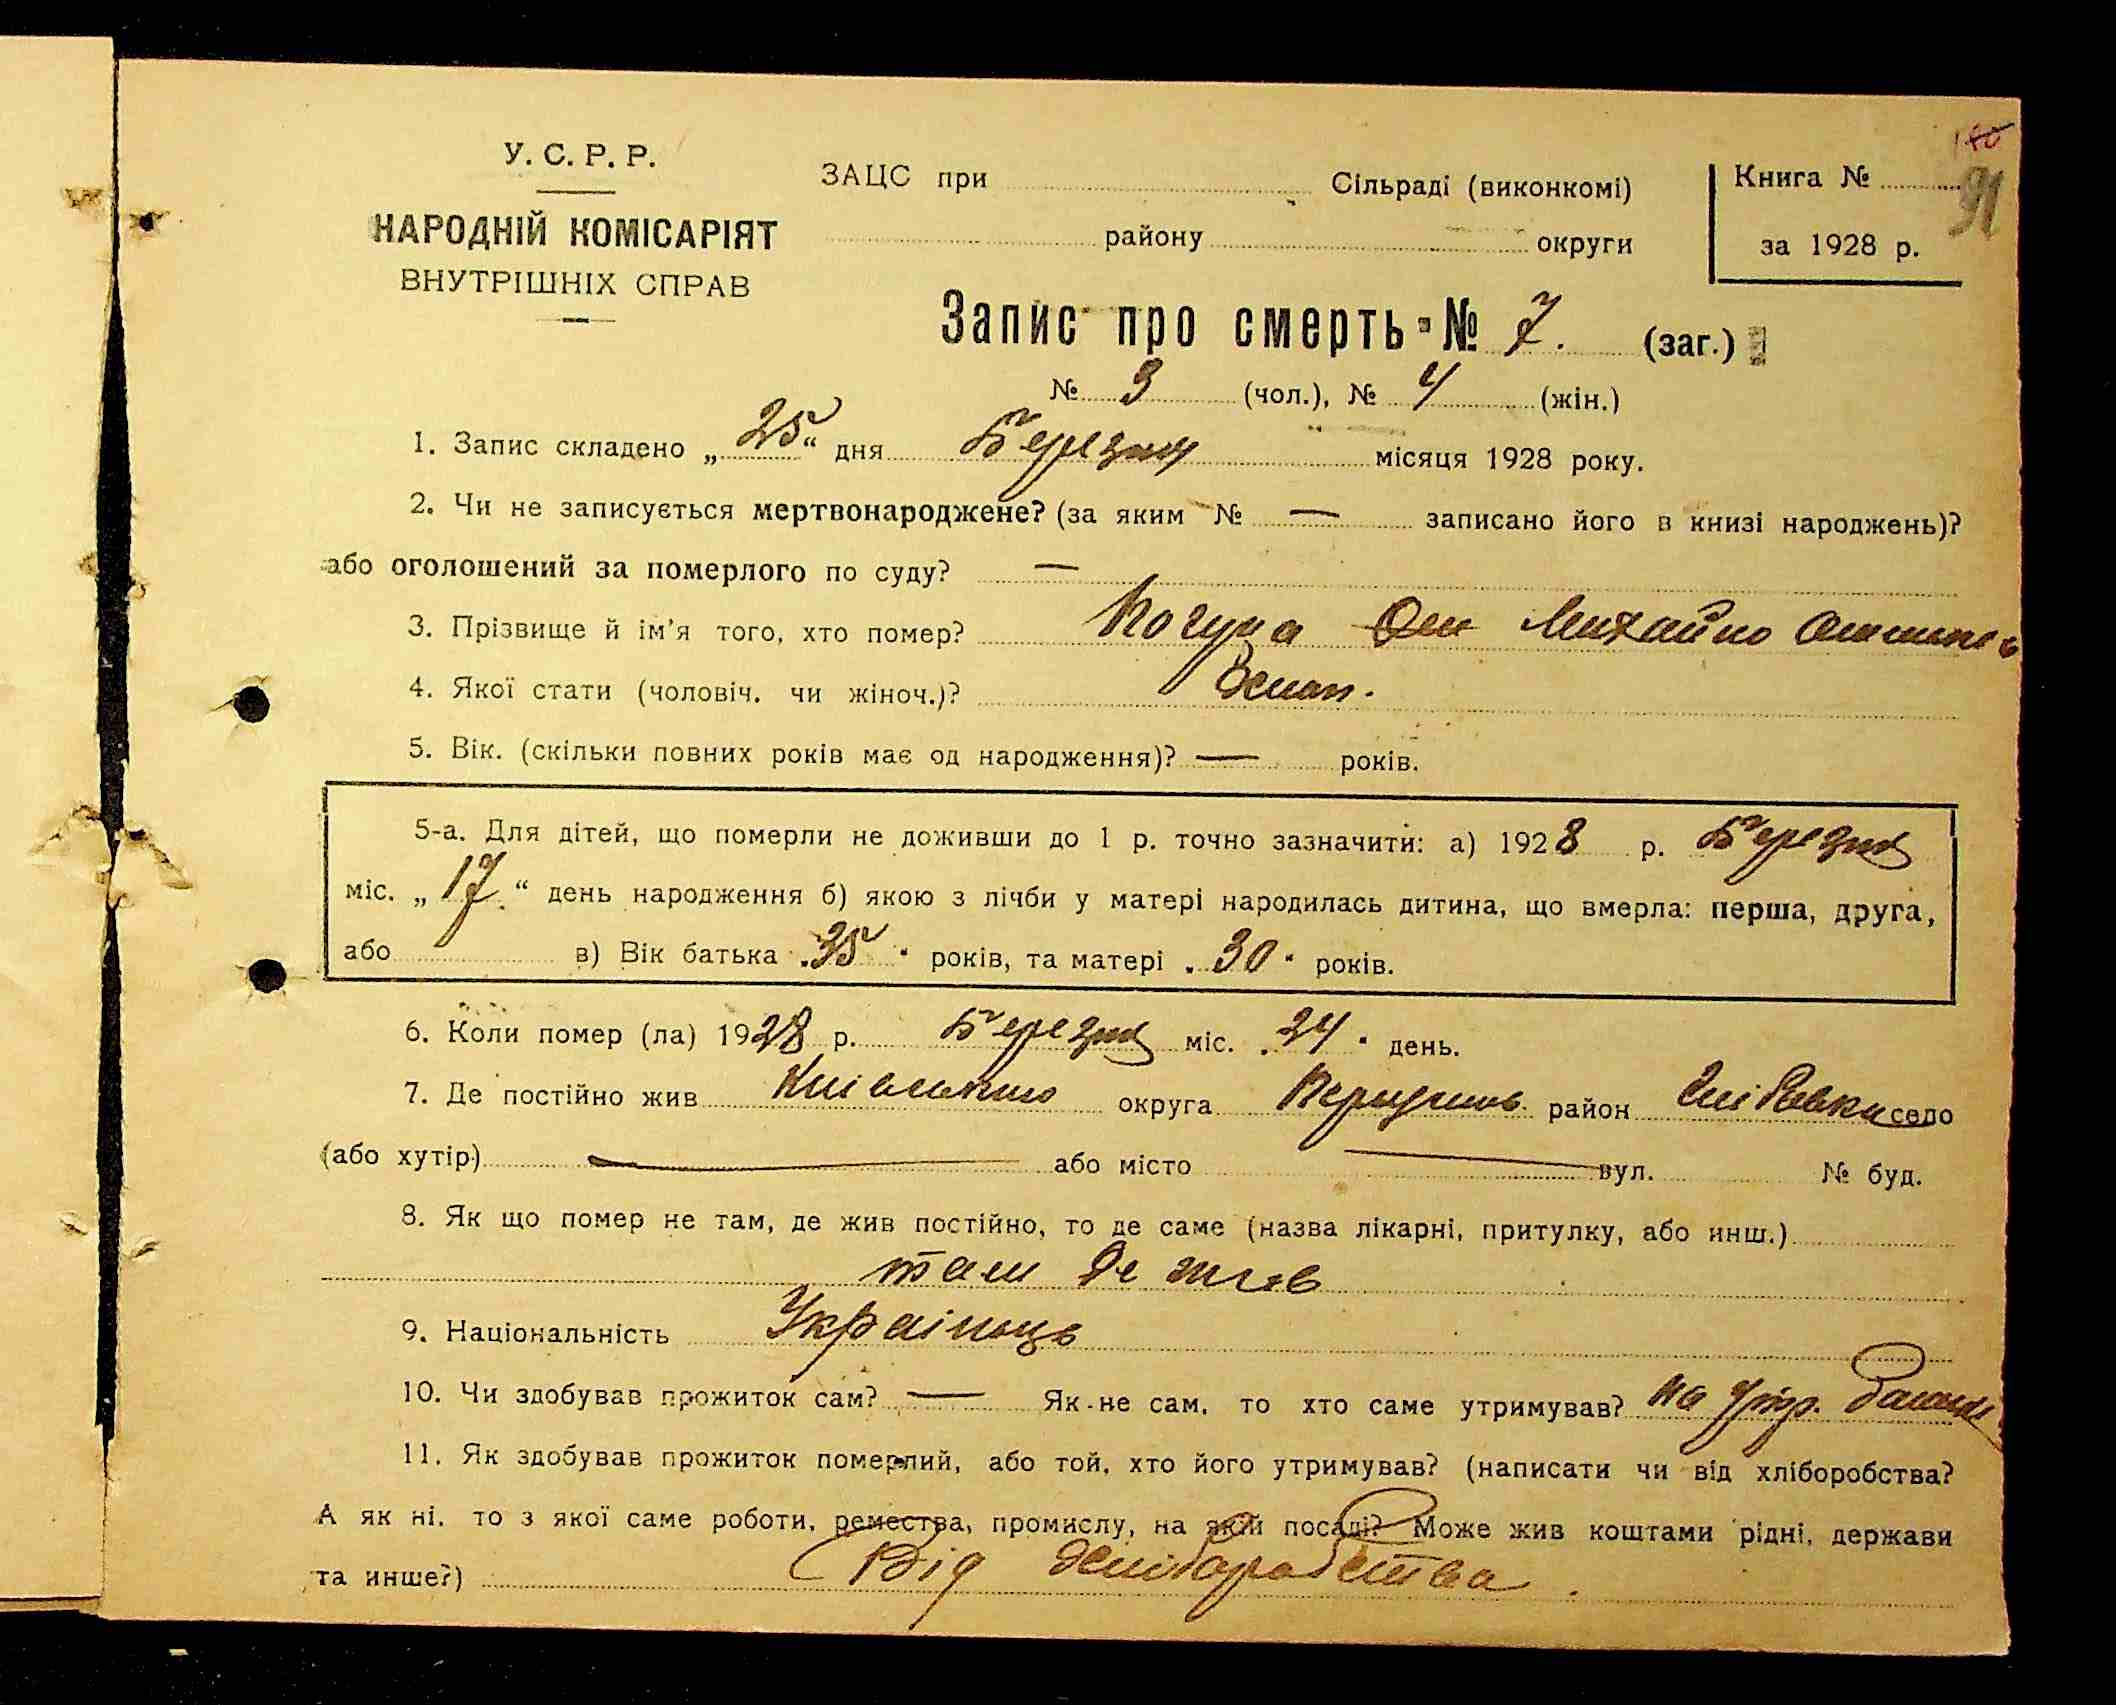 У. С. Р. Р.
НАРОДНІЙ КОМІСАРІЯТ
ВНУТРІШНІХ СПРАВ
ЗАЦС при Сільраді (виконкомі)
району округи
Книга № 91
за 1928 р.
Запис про смерть № 7. (заг.)
№ 3 (чол.), № 4 (жін.)
1. Запис складено „25“ дня Березня місяця 1928 року.
2. Чи не записується мертвонароджене? (за яким № — записано його в книзі народжень)?
або оголошений за померлого по суду? —
3. Прізвище й ім'я того, хто помер? Михайло
4. Якої стати (чоловіч. чи жіноч.)?
5. Вік. (скільки повних років має од народження)? — років.
5-а. Для дітей, що померли не доживши до 1 р. точно зазначити: а) 1928 р. Березня
міс. „17.“ день народження б) якою з лічби у матері народилась дитина, що вмерла: перша, друга,
або в) Вік батька 35 років, та матері 30 років.
6. Коли помер (ла) 1928 р. Березня міс. 24 день.
7. Де постійно жив округа район село
(або хутір) — або місто — вул. № буд.
8. Як що помер не там, де жив постійно, то де саме (назва лікарні, притулку, або инш.)
там де жив
9. Національність Українець
10. Чи здобував прожиток сам? — Як не сам, то хто саме утримував? на утр.
11. Як здобував прожиток померлий, або той, хто його утримував? (написати чи від хліборобства?
А як ні, то з якої саме роботи, ремества, промислу, на якій посаді? Може жив коштами рідні, держави
та инше?) Від